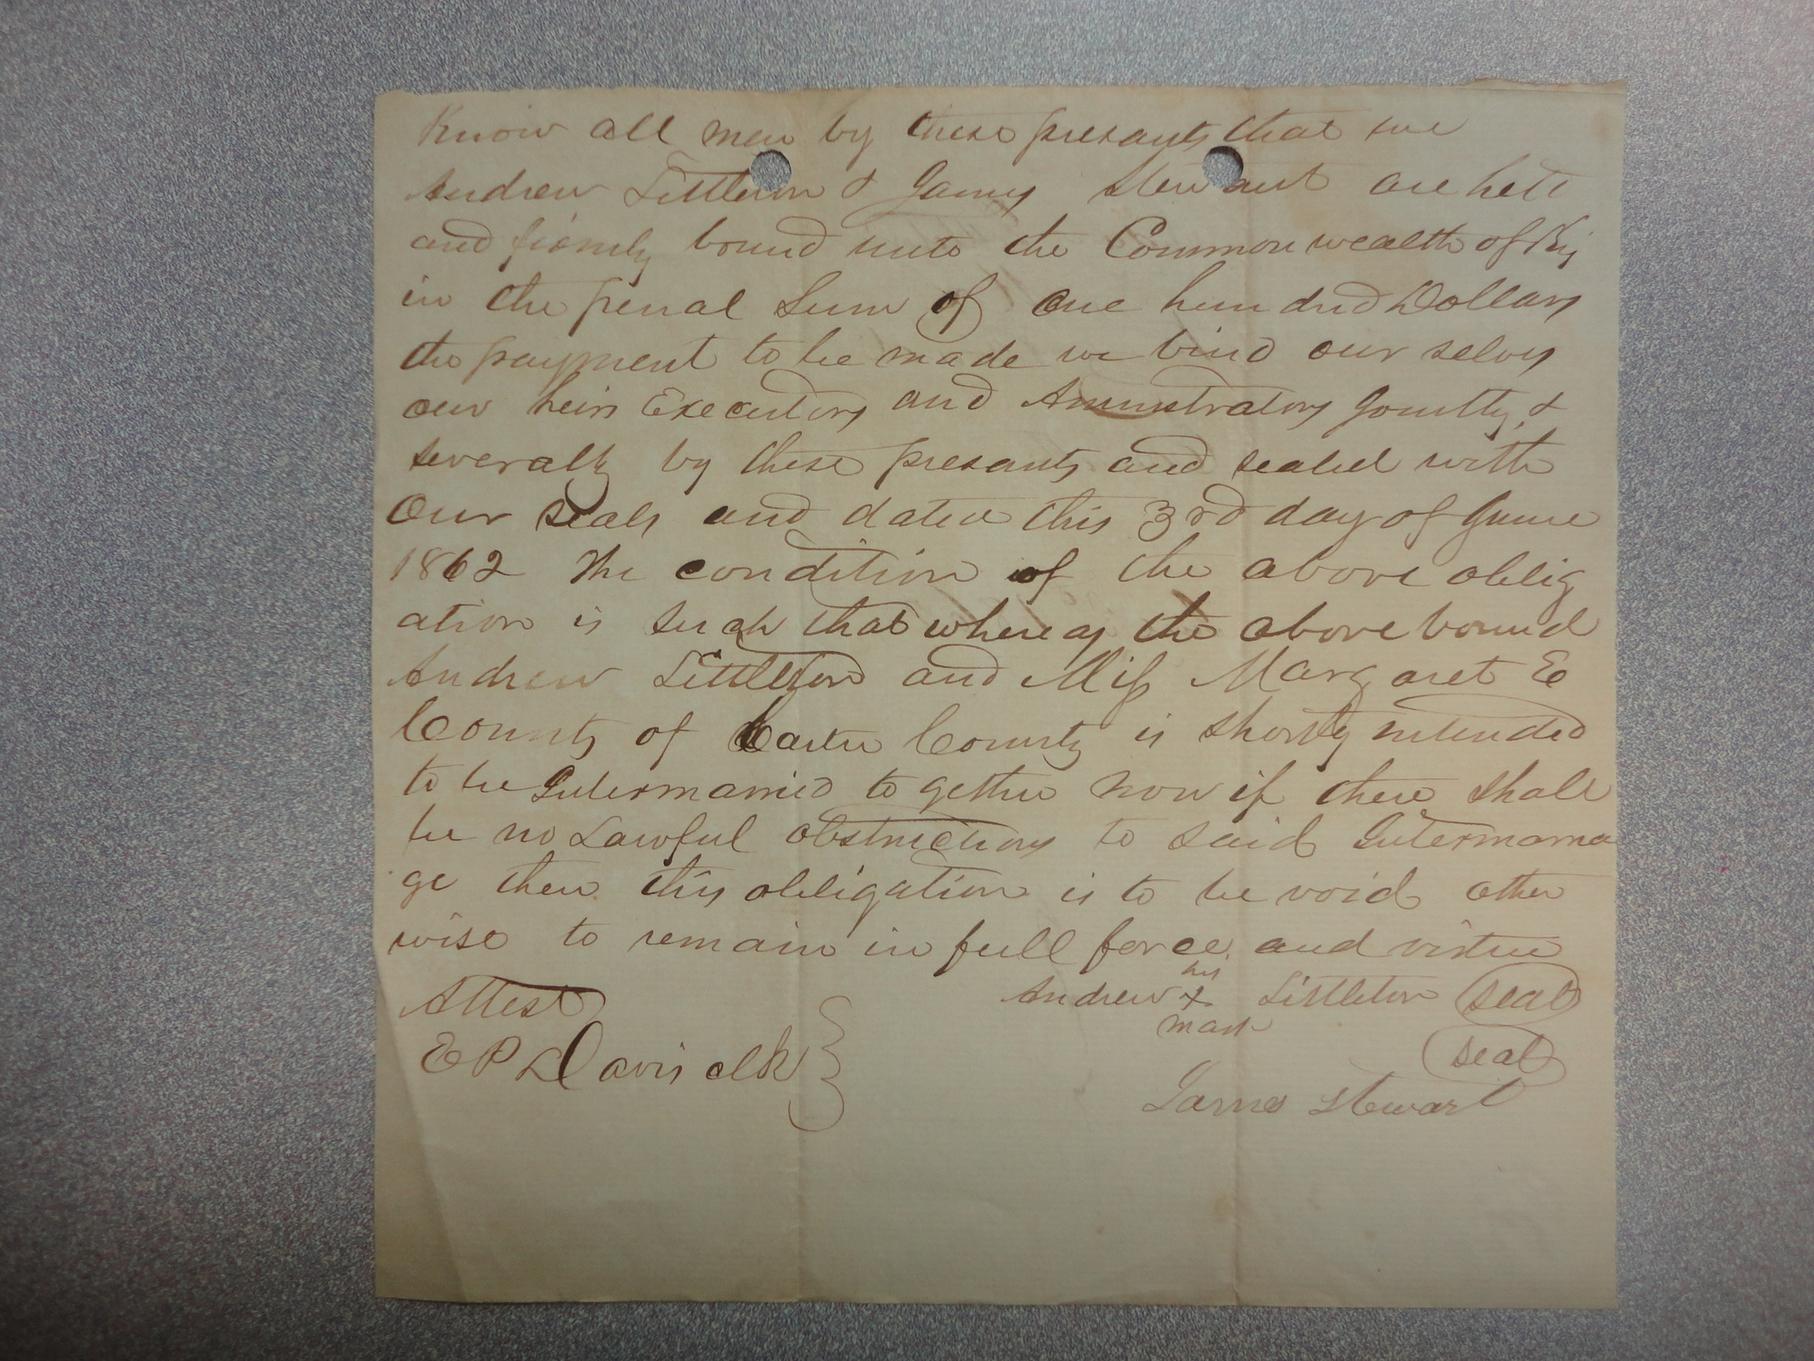 Know all men by these presants that we
Andrew Littleton & James Stewart are held
and firmly bound unto the Commonwealth of Ky
in the penal Sum of One hundred Dollars
the payment to be made we bind our selvs
our heirs Executors and Amnistrators Jointly &
severally by these presants and sealed with
Our seals and dated this 3rd day of June
1862 The condition of the above oblig
ation is such that whereas the above bound
Andrew Littleton and Miss Margaret E
County of Carter County is shortly intended
to be Intermarried to gether now if there shall
be no Lawful obstructions to said Intermarria
ge then this obligation is to be void other
wise to remain in full force and virtue
Attest
E P Davis clk
Andrew his x mark Littleton seal
seal
James Stewart